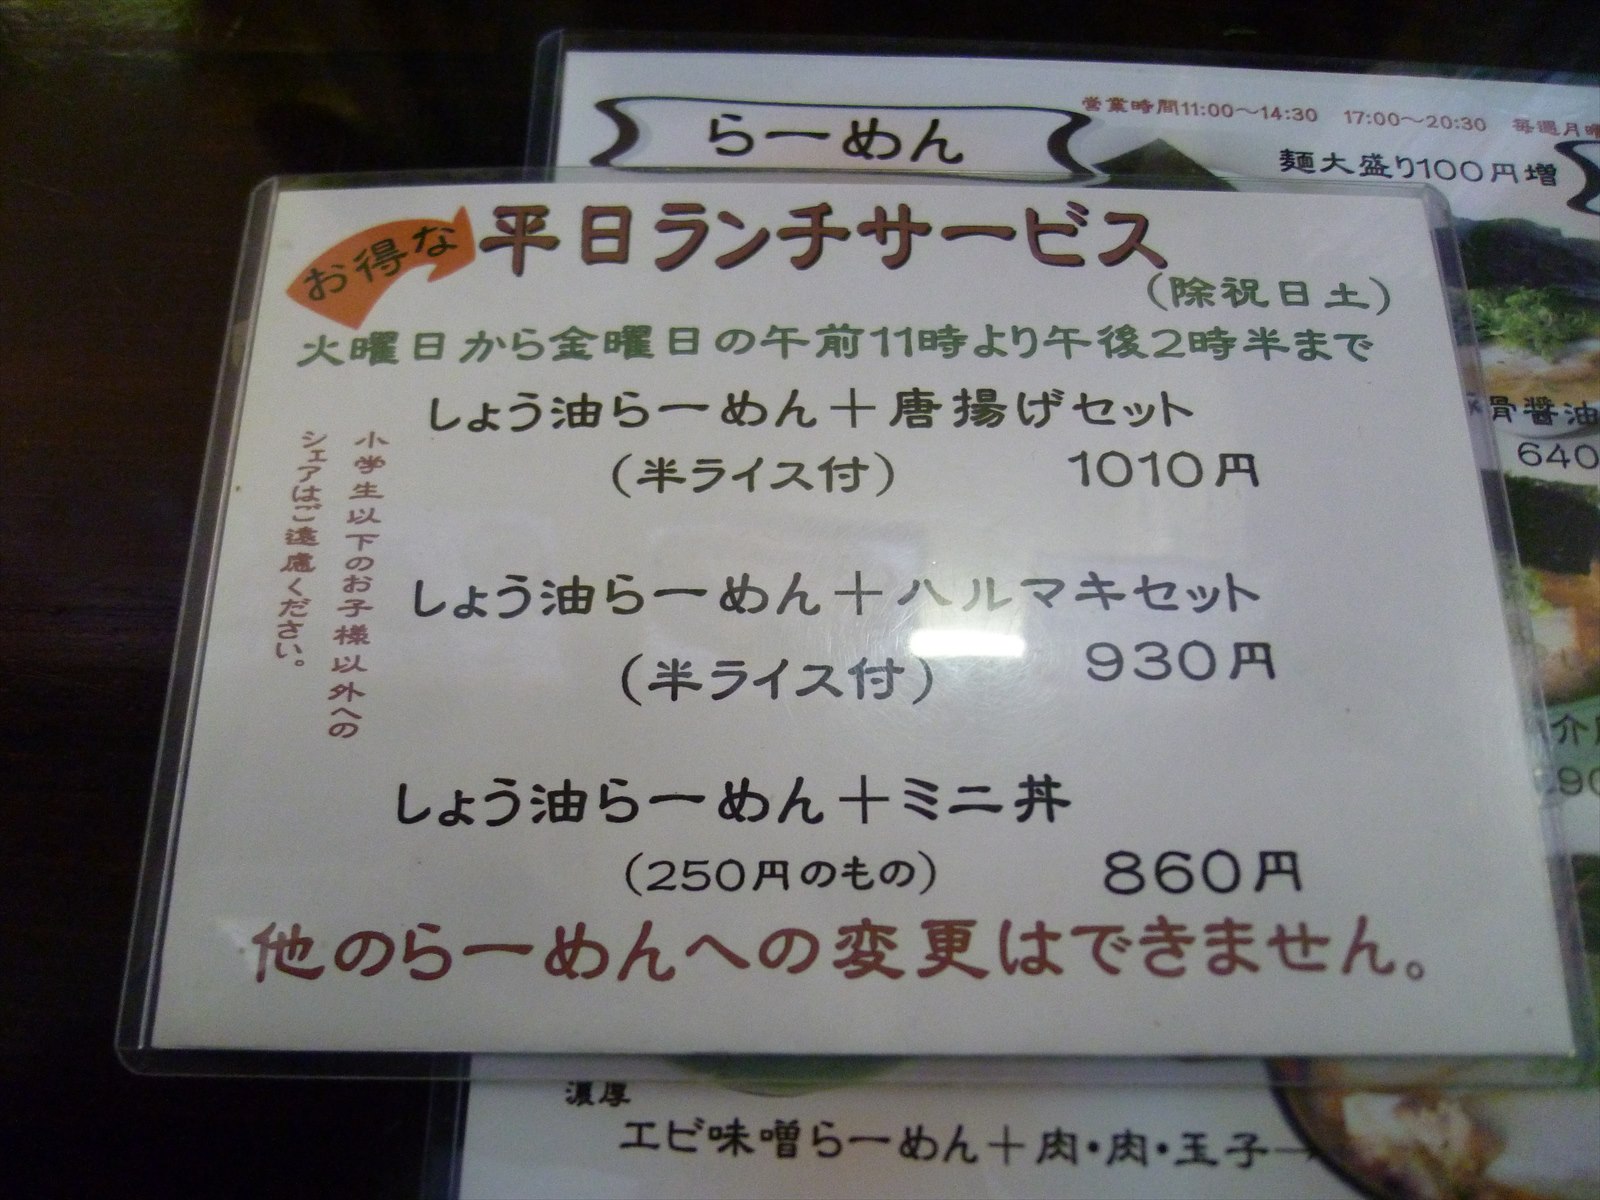 らーめん
営業時間11:00～14:30 17:00～20:30 毎週月曜
麺大盛り100円増
お得な
平日ランチサービス
(除祝日土)
火曜日から金曜日の午前11時より午後2時半まで
小学生以下のお子様以外への
シェアはご遠慮ください。
しょう油らーめん＋唐揚げセット
(半ライス付) 1010円
しょう油らーめん＋ハルマキセット
(半ライス付) 930円
しょう油らーめん＋ミニ丼
(250円のもの) 860円
他のらーめんへの変更はできません。
骨醤油
640
介
90
濃厚
エビ味噌らーめん＋肉・肉・玉子